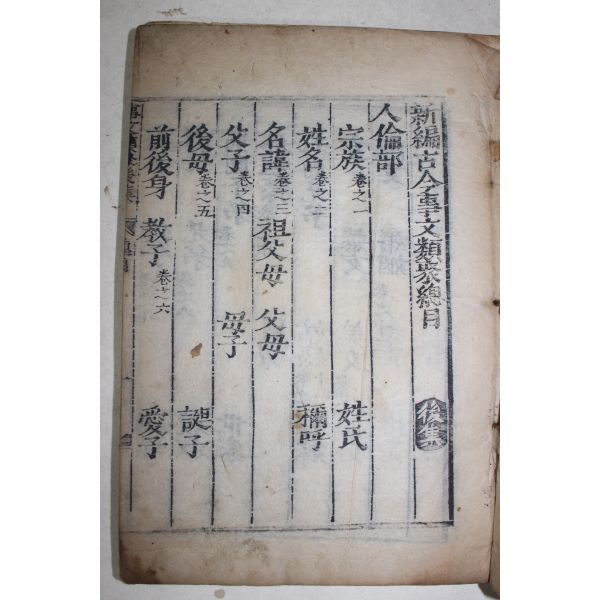 新編古今事文類聚總目 後集
人倫部
宗族 卷之一 姓氏
姓名 卷之二 稱呼
名諱 卷之三 祖父母 父母
父子 卷之四 母子
後母 卷之五 諛子
前後身 教子 卷之六 愛子